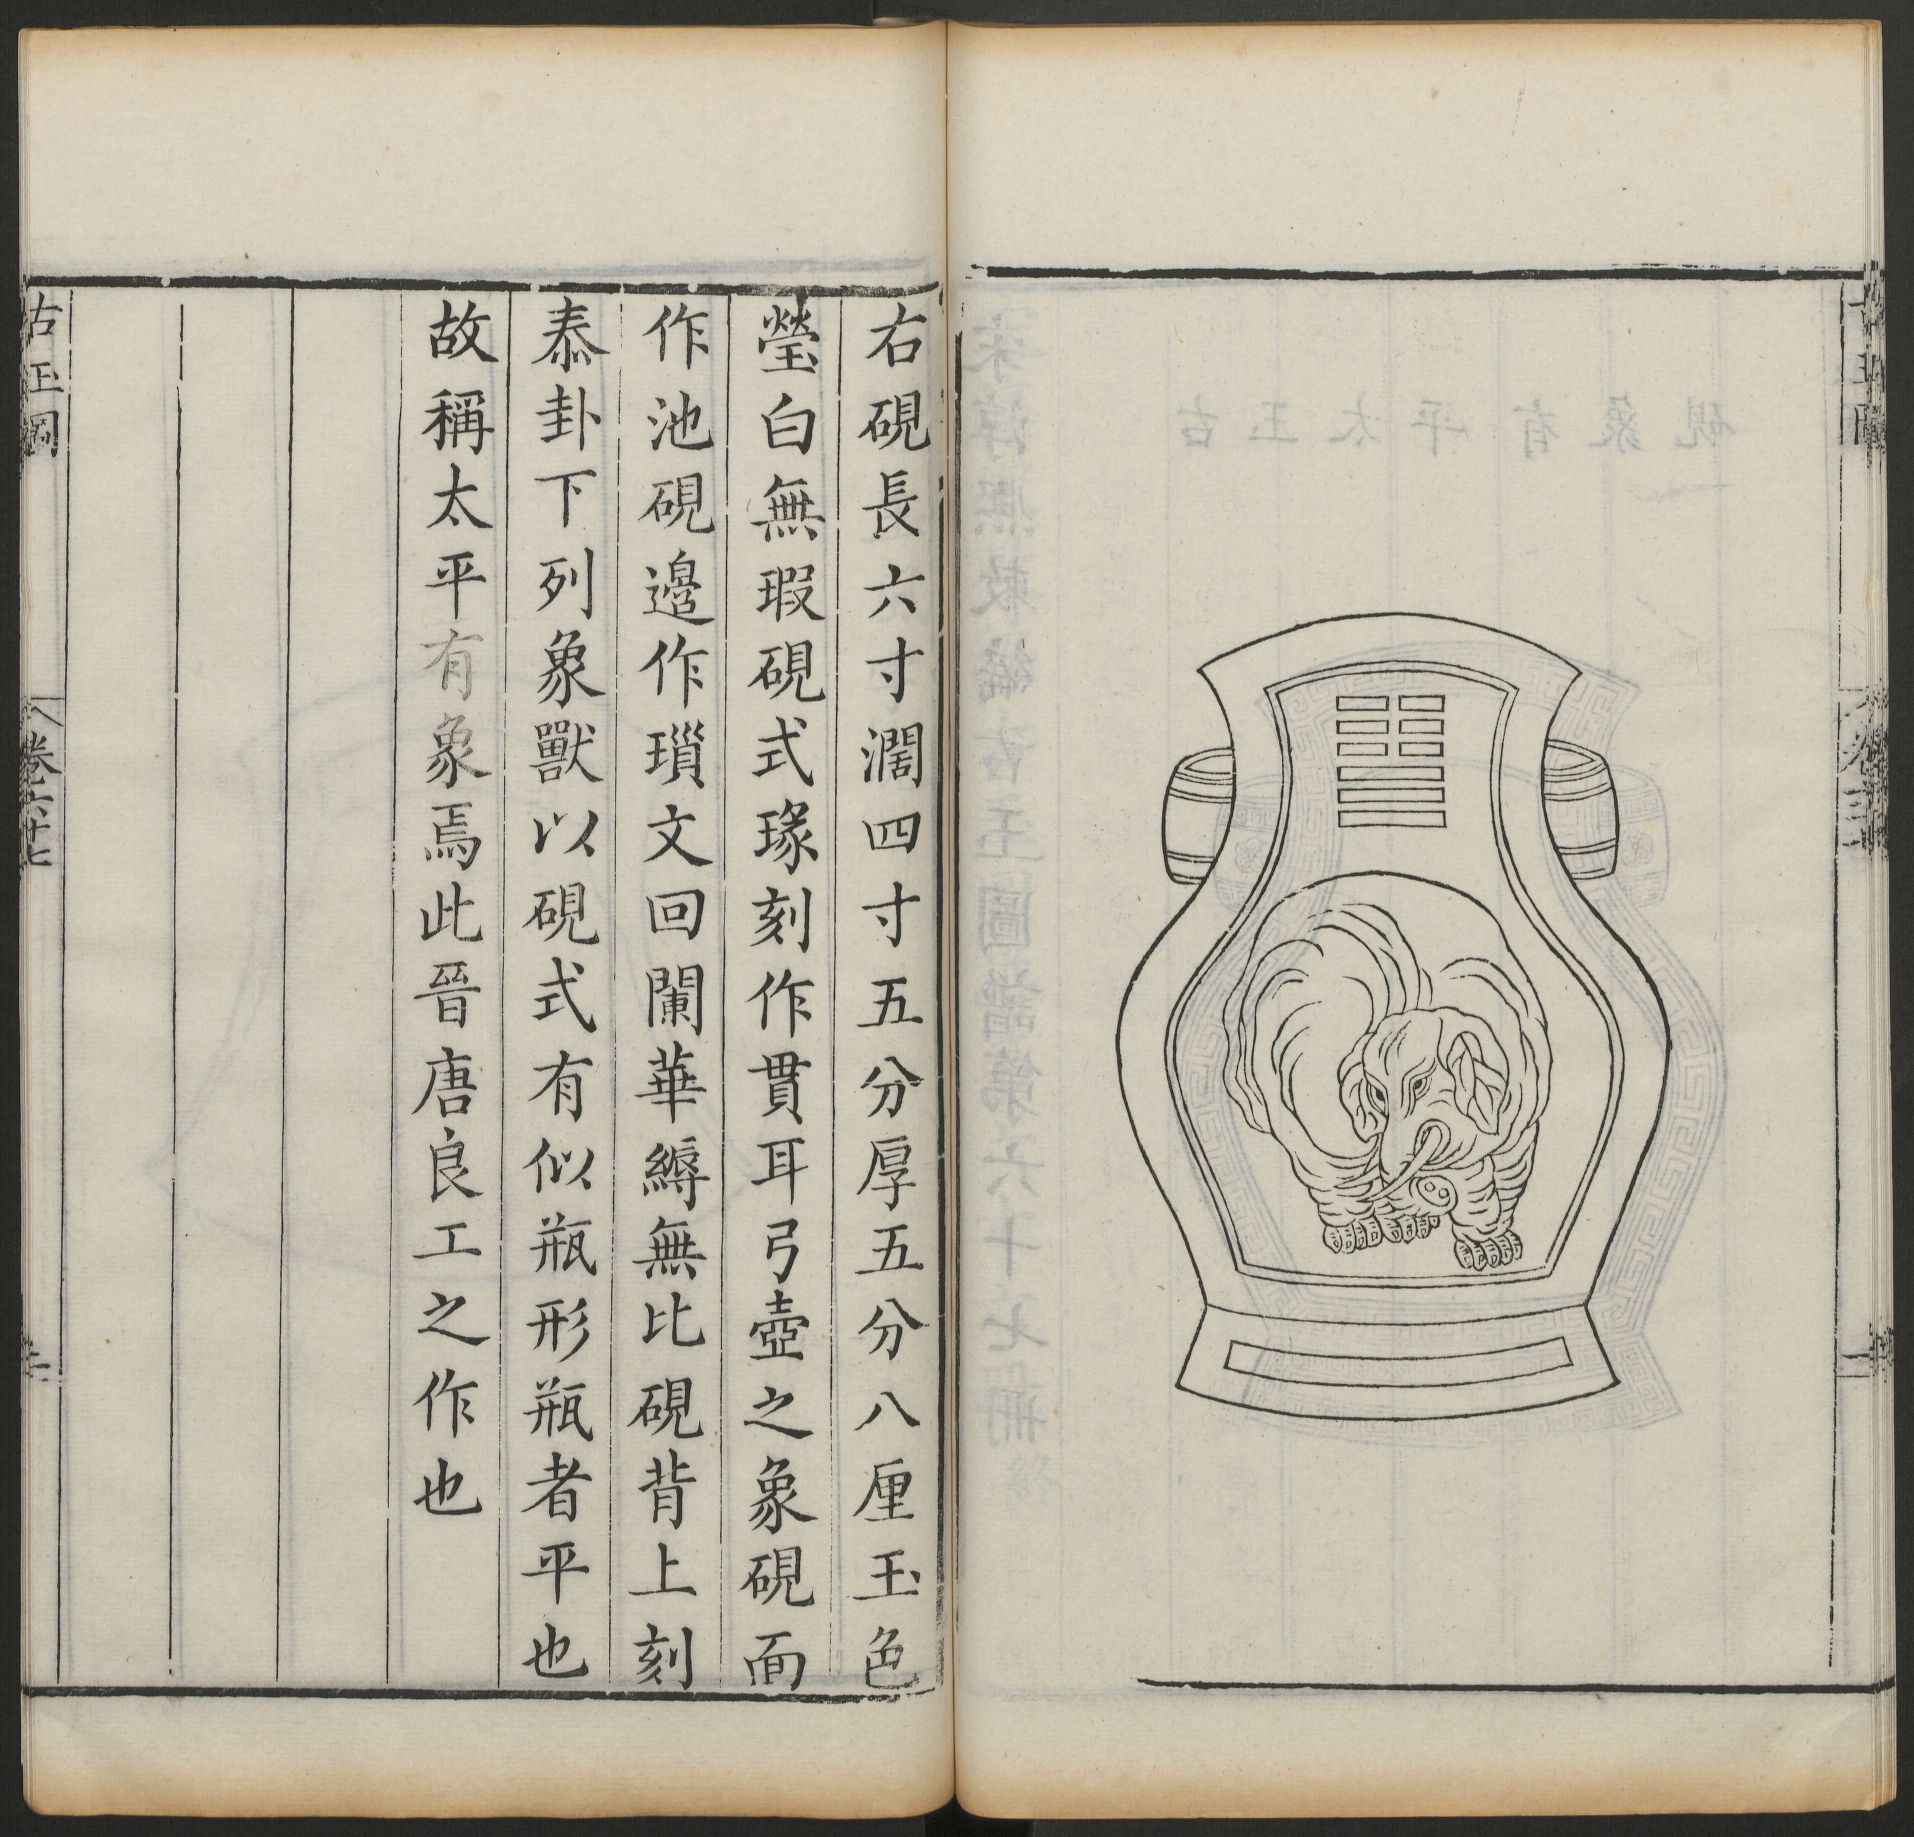 右硯長六寸濶四寸五分厚五分八厘玉色
瑩白無瑕硯式瑑刻作貫耳弓壺之象硯面
作池硯邊作瑣文回闌華縟無比硯背上刻
泰卦下列象獸以硯式有似瓶形瓶者平也
故稱太平有象焉此晉唐良工之作也
古玉圖
卷六十七